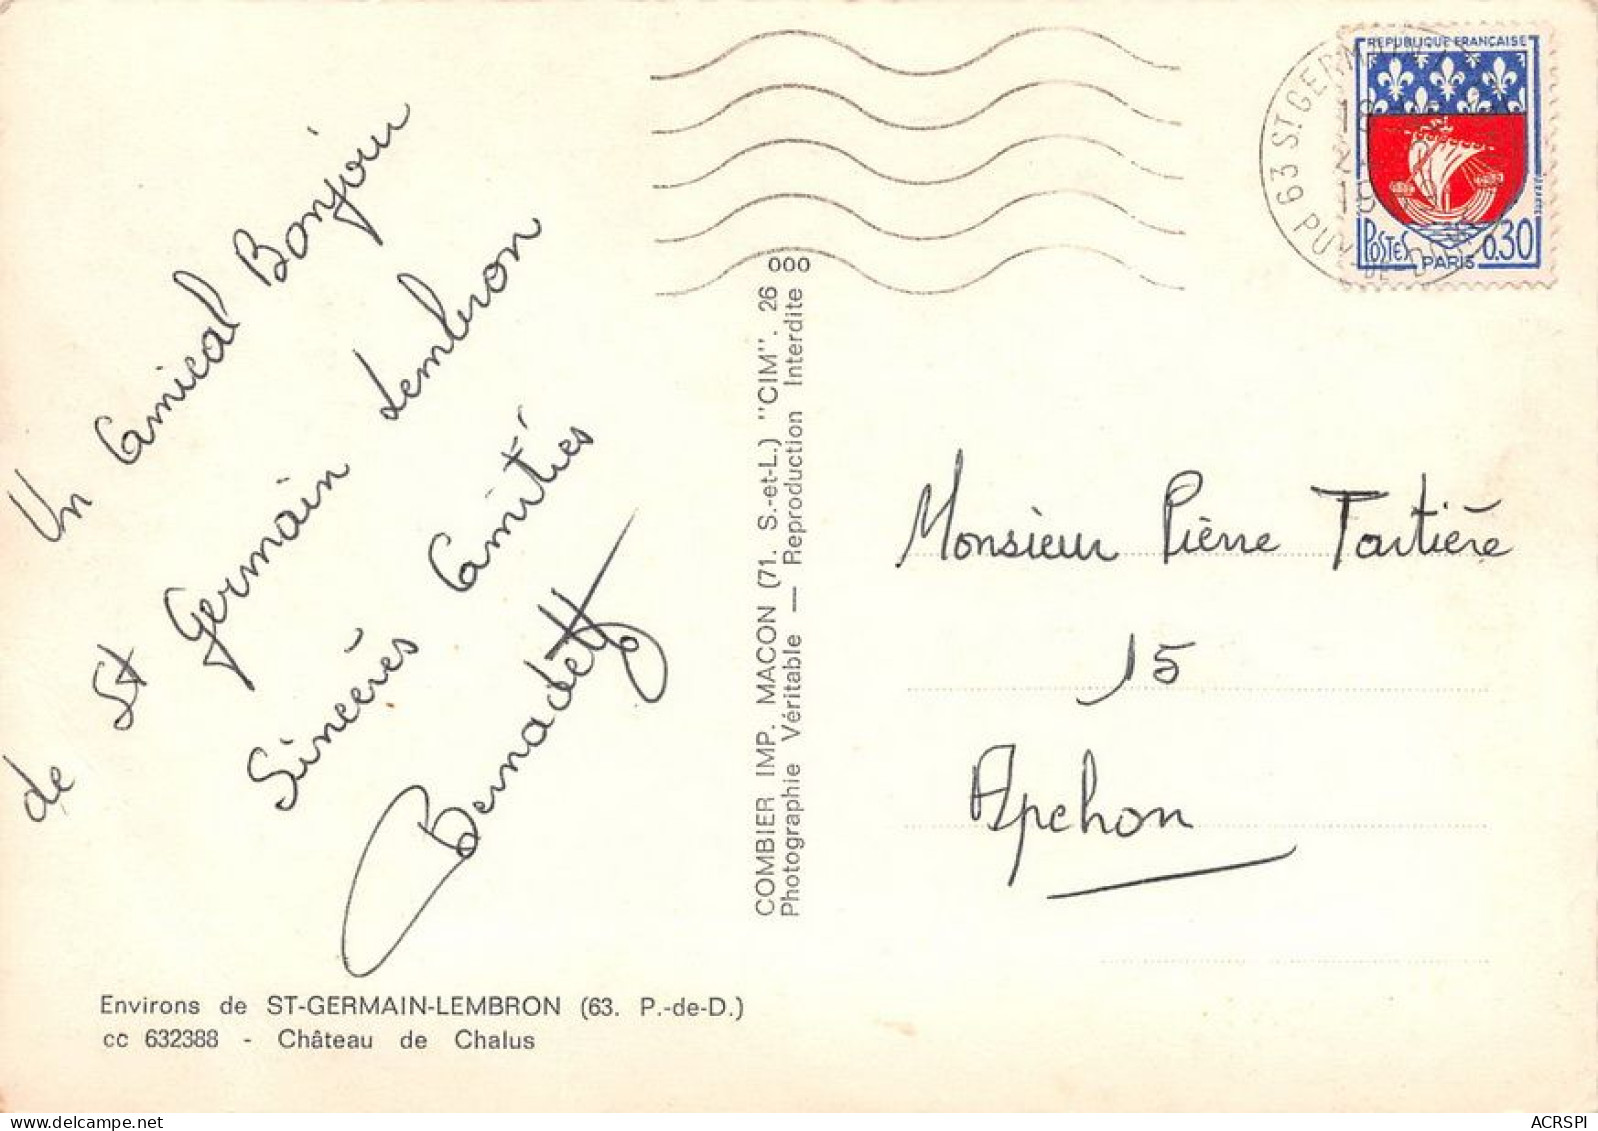 Un Amical Bonjour
de St Germain Lembron
Sincères Amitiés
Bernadette
Environs de ST-GERMAIN-LEMBRON (63. P.-de-D.)
cc 632388 - Château de Chalus
COMBIER IMP. MACON (71. S.-et-L.) "CIM". 26
Photographie Véritable — Reproduction Interdite
000
63 ST GERMAIN
PUY-DE-DOME
REPUBLIQUE FRANÇAISE
POSTES
PARIS
0.30
Monsieur Pierre Tartière
15
Apchon
ACRSPI